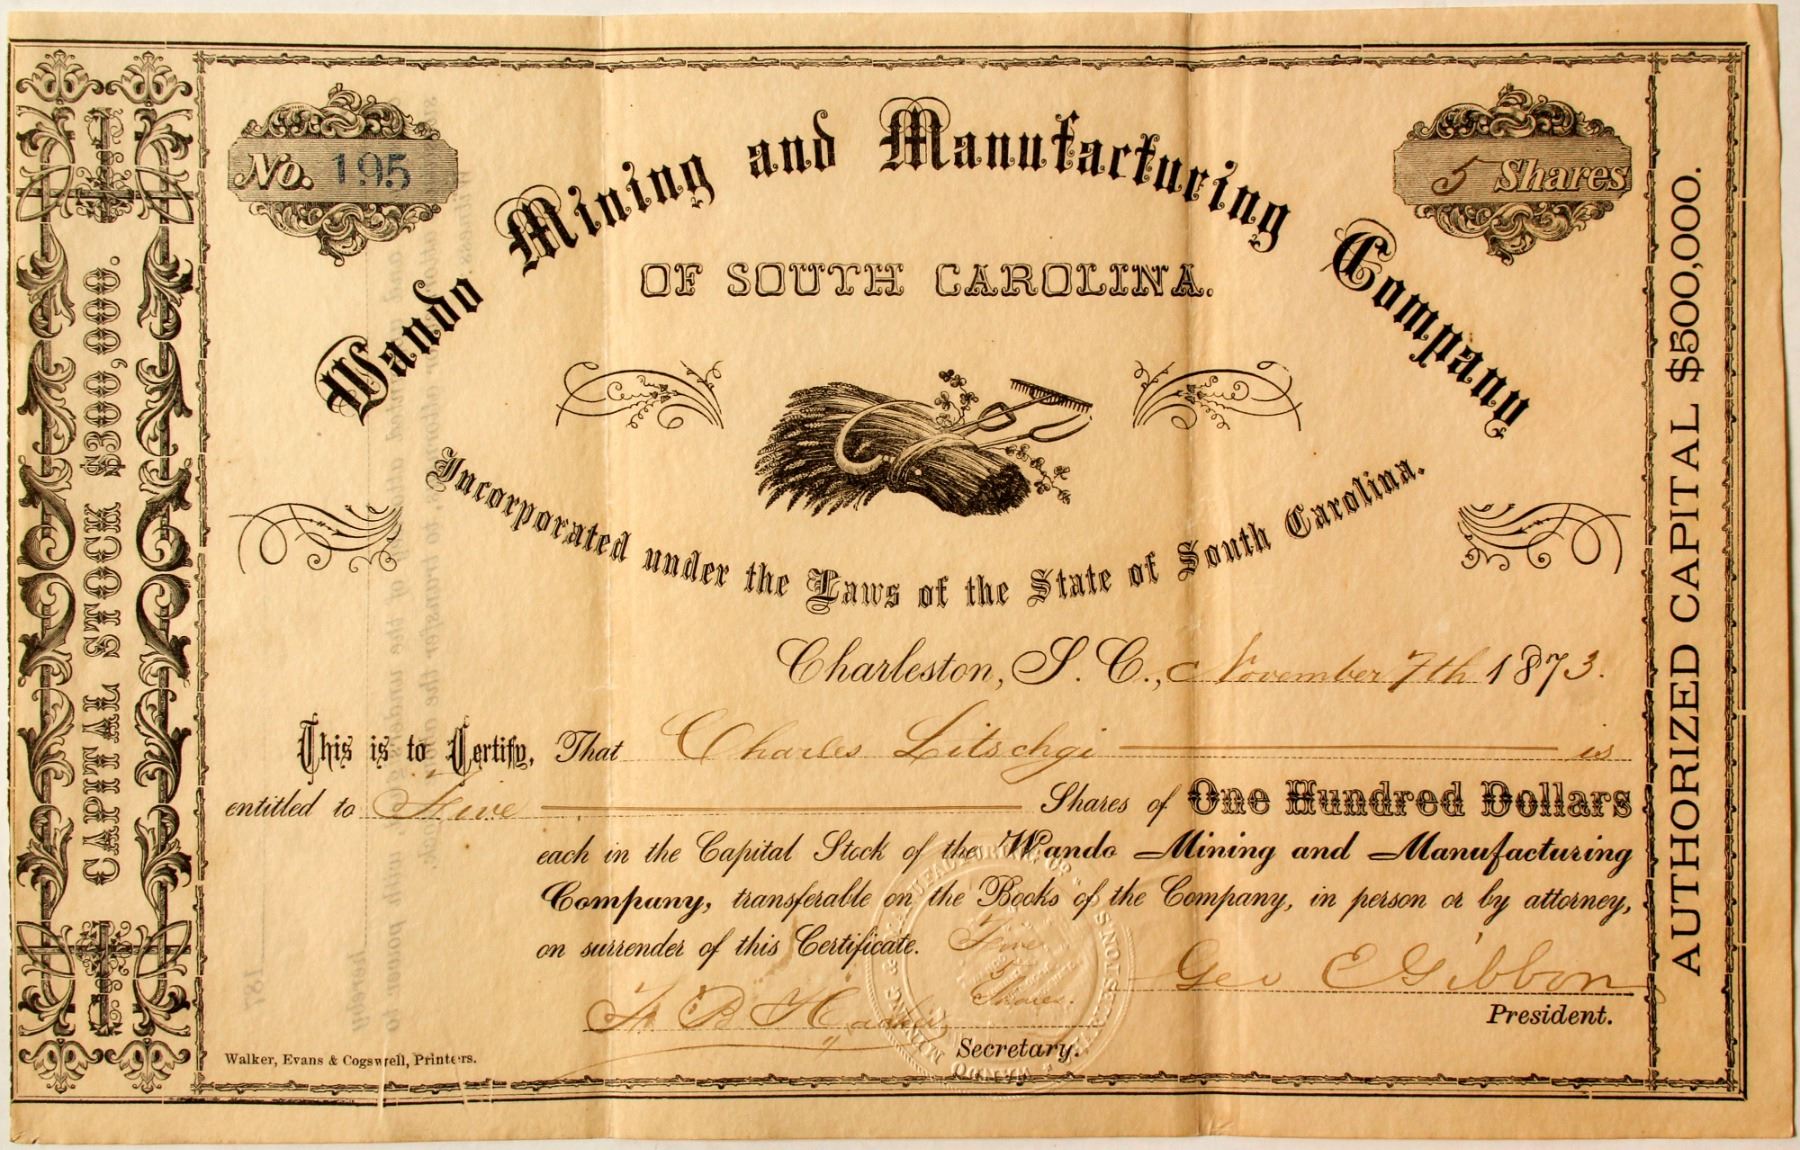 No. 195
5 Shares
Wando Mining and Manufacturing Company
OF SOUTH CAROLINA.
Incorporated under the Laws of the State of South Carolina.
CAPITAL STOCK $300,000.
AUTHORIZED CAPITAL $500,000.
Charleston, S. C., November 7th 1873.
This is to Certify, That Charles Litschgi is
entitled to Five Shares of One Hundred Dollars
each in the Capital Stock of the Wando Mining and Manufacturing
Company, transferable on the Books of the Company, in person or by attorney,
on surrender of this Certificate.
Five
Shares.
Geo E Gibbon
President.
Secretary.
Walker, Evans & Cogswell, Printers.